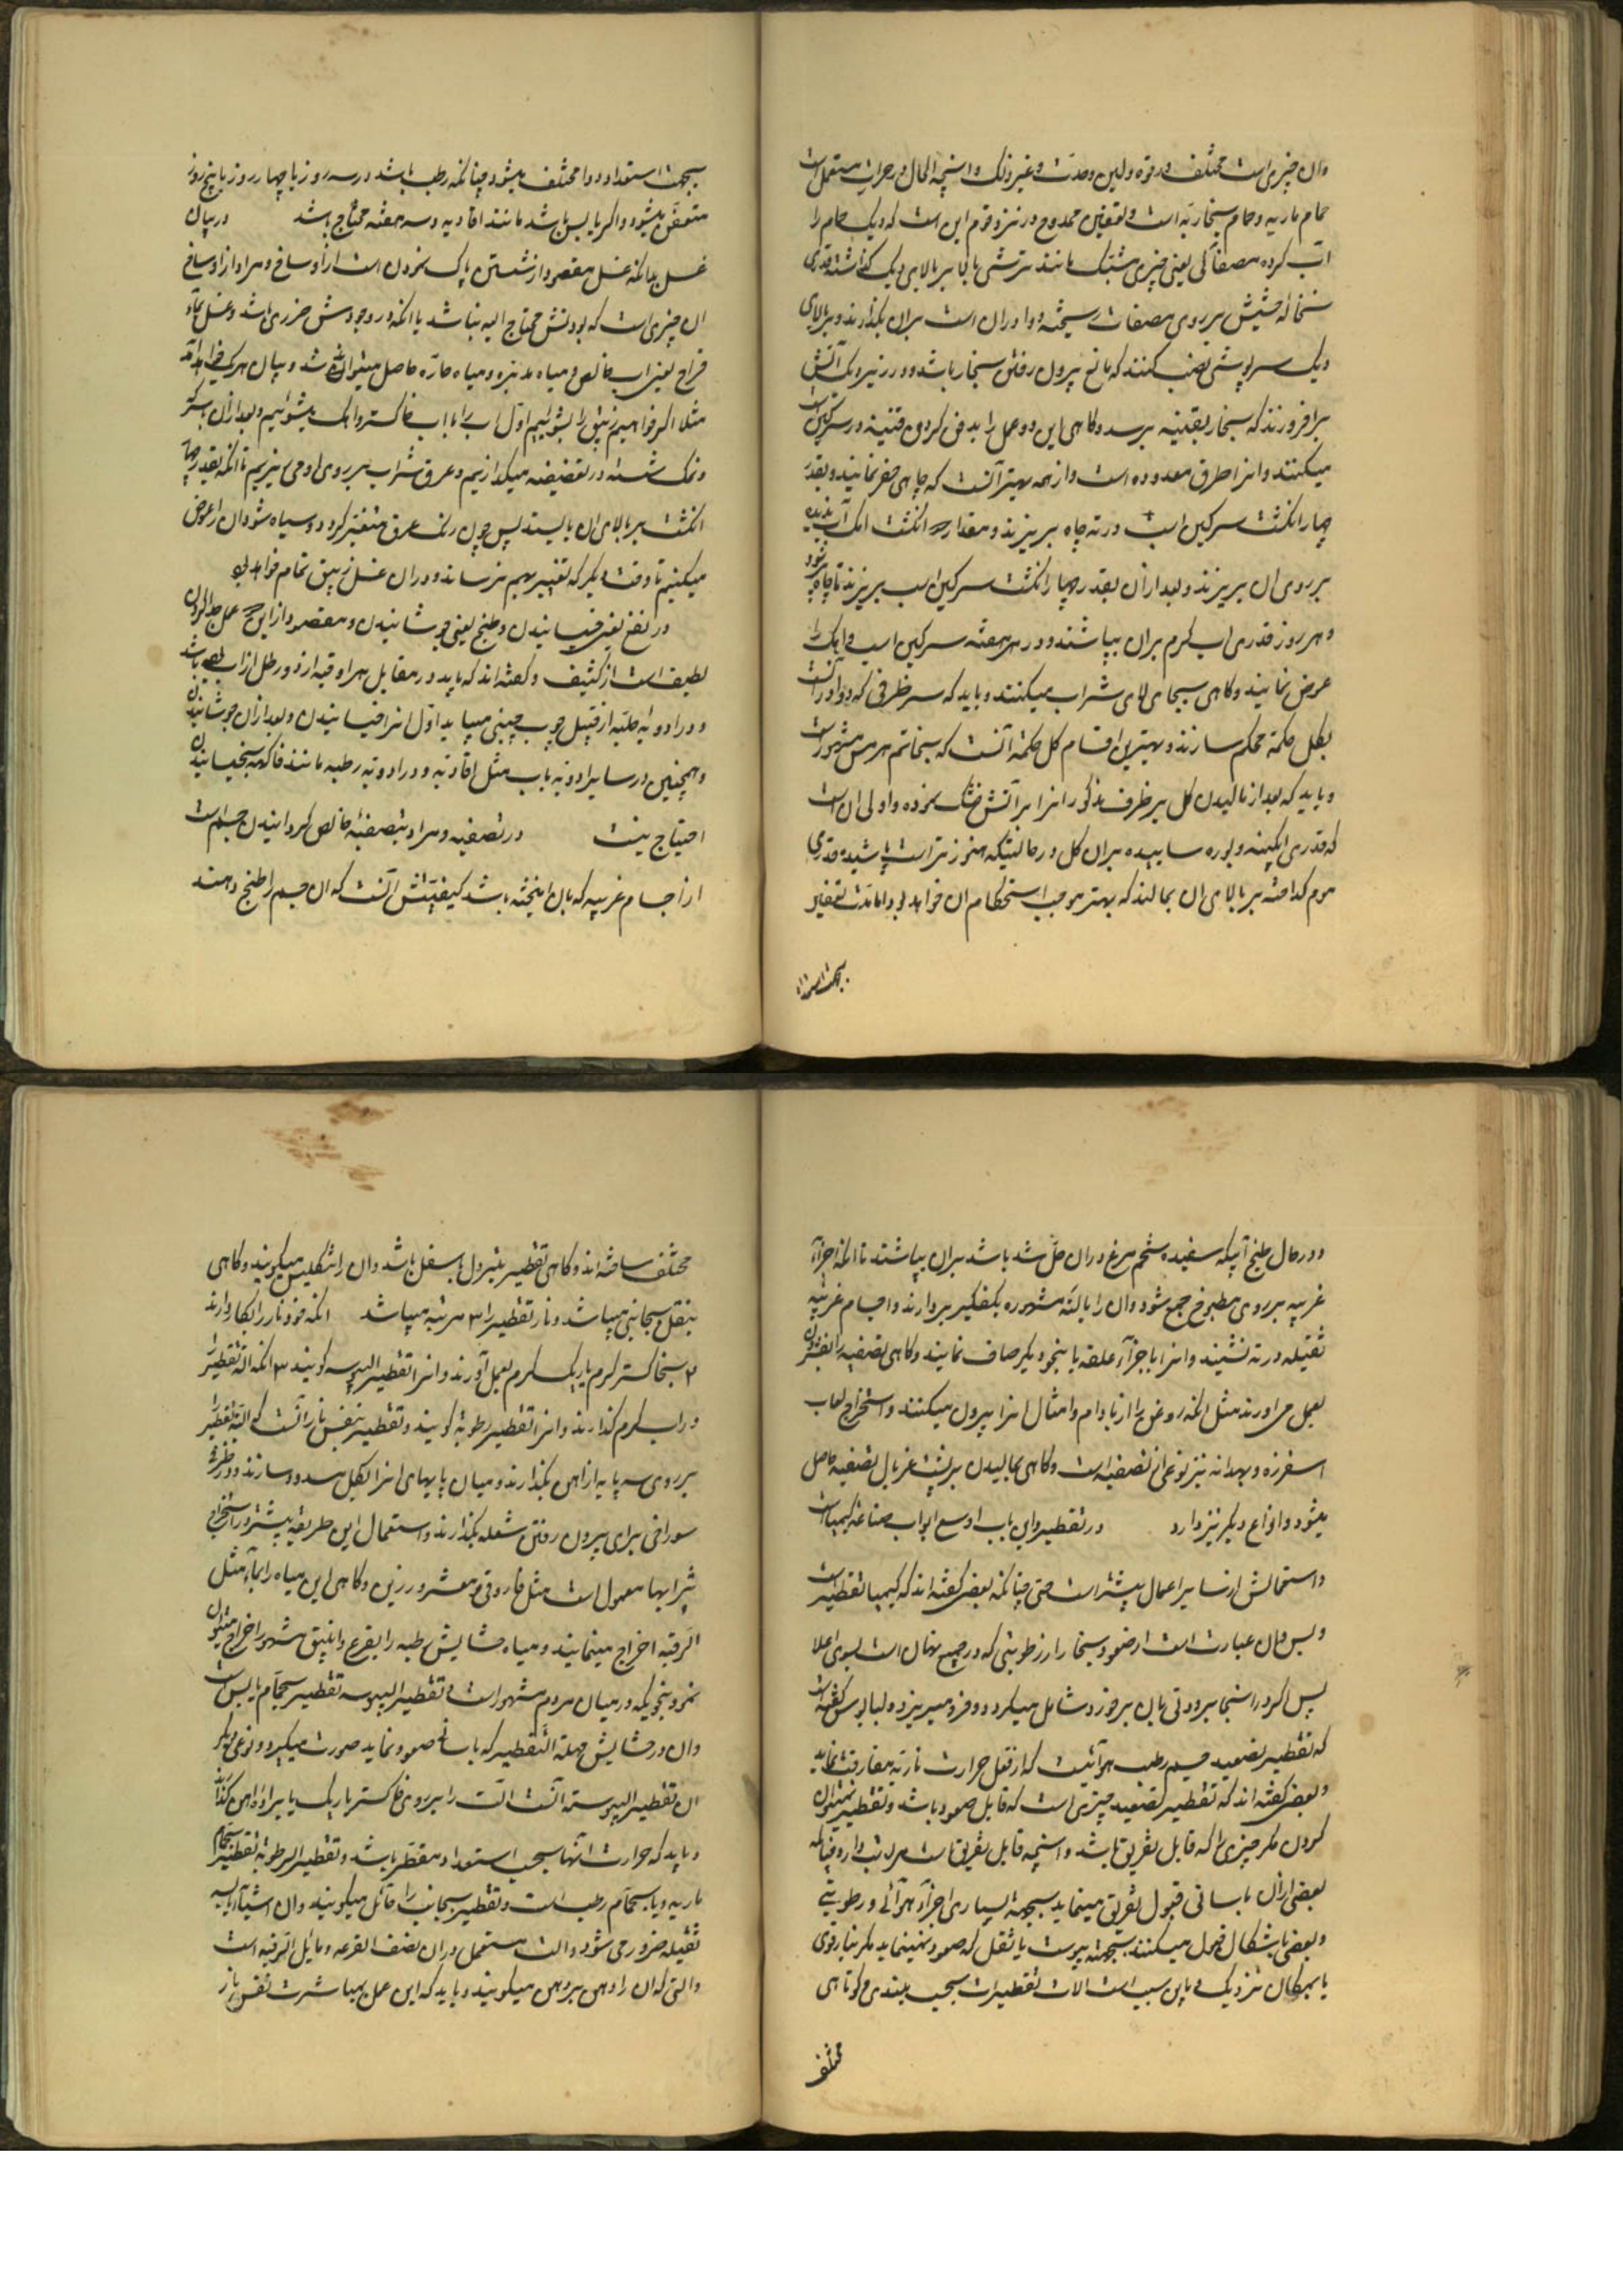 وان چیزی است مختلف در قوه و لین و حدت و غیر ذلک و انچه الحال در حرارت مستعمل است
حمام ماریه و حمام بخاریه است و تعفین ممدوح در نزد قوم این است که دیک حمام را
آب کرده مصفاتی یعنی چیزی مشبک مانند ترشی پالا بر بالای دیک گذاشته قدری
نخاله حشیش بر روی مصفات ریخته و دوا در ان است بران بگذارند و بر بالای
دیک سرپوشی نصب کنند که مانع بیرون رفتن بخار باشد و در زیر دیک آتش
برافروزند که بخار بقنینه برسد و کاهی این دو عمل را بدفن کردن قنینه در سرکین است
میکنند و انرا طرق معدوده است و از همه بهتر آنست که چاهی حفر نمایند و بقدر
چهار انکشت سرکین اسب در ته چاه بریزند و مقدار انکشت اهک آب ندیده
بر روی ان بریزند و بعد از ان بقدر چهار انکشت سرکین اسب بریزند تا چاه پر شود
و هر روز قدری اب کرم بران بپاشند و در هر هفته سرکین اسب و اهک را
عوض نمایند و کاهی بجای لای شراب میکنند و باید که سر ظرفی که دوا در آنست
بکل حکمة محکم سازند و بهترین اقسام کل حکمة آنست که بخاتم هرمس مشهور است
و باید که بعد از مالیدن کل بر ظرف مذکور انرا بر آتش خشک نموده و اولی ان است
که قدری ابکینه و بوره ساییده بران کل در حالتیکه هنوز تر است پاشیده قدری
موم کداخته بر بالای ان بمالند که بهتر موجب استحکام ان خواهد بود اما مدت تعفین
بجهت استعداد
بجهت استعداد دوا مختلف میشود چنانکه رطب باشد در سه روز یا چهار روز یا پنج روز
متعفن میشود و اکر یابس باشد مانند افاویه و سه هفته محتاج باشد در بیان
غسل بدانکه غسل مقصود از شستن و پاک نمودن است از اوساخ و مراد از اوساخ
ان چیزی است که بودنش محتاج الیه نباشد یا انکه در وجودش ضرری باشد و غسل بماء
قراح یعنی اب خالص و میاه مدبره و میاه حاره حاصل میتواند شد و بیان هر یک خواهد آمد
مثلا اکر خواهیم زیبق را بشوئیم اول اب را با اب خاکستر و اهک میشوئیم و بعد از ان بسرکه
و نمک شسته در تغضیضه میکذاریم و عرق شراب بر روی او می ریزیم تا انکه بقدر چهار
انکشت بر بالای ان بایستد پس چون رنک عرق متغیر کردد و سیاه شود ان را عوض
میکنیم تا وقت دیکر که تغییر بهم نرساند و در ان غسل زیبق تمام خواهد بود
در نقع یعنی خیسانیدن و طبخ یعنی جوشانیدن و مقصود از این عمل جدا کردن
لطیف است از کثیف و کفته اند که باید در مقابل هر اوقیه ازو رطل از اب بوده باشد
و در ادویه صلبه از قبیل چوب چینی میباید اول انرا خیسانیدن و بعد از ان جوشانیدن
و همچنین در سایر ادویه یابس مثل افاویه و در ادویه رطبه مانند فاکهه بخیسانیدن
احتیاج نیست در تصفیه و مراد بتصفیه خالص کردانیدن جسم است
از اجسام غریبه که بان امیخته باشد کیفیتش آنست که ان جسم را طبخ دهند
و در حال طبخ آبیکه سفیده تخم مرغ در ان حل شده باشد بران بپاشند تا انکه اجزاء
غریبه بر روی مطبوخ جمع شود و ان را بالته مشهوره بکفکیر بردارند و اجسام غریبه
ثقیله در ته نشیند و انرا باجزاء علقه یا بنحو دیکر صاف نمایند و کاهی تصفیه را بفشردن
بعمل می اورند مثل انکه روغن را از بادام و امثال انرا بیرون میکنند و استخراج لعاب
اسفرزه و بهدانه نیز نوعی از تصفیه است و کاهی بمالیدن بر پشت غربال تصفیه حاصل
میشود و انواع دیکر نیز دارد در تقطیر و این باب اوسع ابواب صناعة کیمیاست
و استعمالش از سایر اعمال بیشتر است حتی چنانکه بعضی کفته اند که کیمیا تقطیر است
و بس و ان عبارت است از صعود بخار از رطوبتی که در جسم پنهان است بسوی اعلا
پس اکر در انجا برودتی بان برخورد شامل میکردد و فرو میریزد و لبالیوس کفته است
که تقطیر تصعید جسم رطب هوائیست که از ثقل حرارت نار ته مفارقت نماید
و بعضی کفته اند که تقطیر تصعید چیزی است که قابل صعود باشد و تقطیر نمیتوان
کردن مکر چیزی را که قابل تفریق باشد و انچه قابل تفریق است مراتب دارد چنانکه
بعضی از ان باسانی قبول تفریق مینماید بجهة بسیاری اجزاء هوائی و رطوبتی
و بعضی باشکال قبول میکنند بجهة یبوست یا ثقل که صعود نمینماید مکر بنار قوی
یا بمکان نزدیک و باین سبب است الات تقطیرات بحسب بلندی و کوتاهی
مختلف
مختلف ساخته اند و کاهی تقطیر بنزول باسفل باشد و ان را تنکیس میکویند و کاهی
بنقل بجانبی میباشد و نار تقطیر را ۳ مرتبه میباشد انکه خود نار را بکار دارند
۲ بخاکستر کرم یا ریک کرم بعمل آورند و انرا تقطیر الیبوسه کویند ۳ انکه الت تقطیر را
در اب کرم گذارند و انرا تقطیر رطوبة کویند و تقطیر بنفس نار آنست که الت تقطیر را
بر روی سه پایه از اهن بگذارند و میان پایهای انرا بکل مسدود سازند و در طرف
سوراخی برای بیرون رفتن شعله بگذارند و استعمال این طریقه بیشتر در استخراج
شرابها معمول است مثل فاروقی و معشر و رزین و کاهی این میاه را بماء مثل
الرقبه اخراج مینمایند و میاه حشایش رطبه را بقرع و انبیق مشهور اخراج میتوان
نمود بنحویکه در میان مردم مشهور است و تقطیر الیبوسه تقطیر بحمام یابس است
وان در حشایش سهلة التقطیر که باسانی صعود نماید صورت میکیرد و نوعی دیکر
ان تقطیر الیبوسة آنست الت را بر روی خاکستر باریک یا براده اهن گذارند
و باید که حرارت آنها بحسب استعداد مقطر باشد و تقطیر الرطوبة تقطیر بحمام
ماریه و یا بحمام رطب است و تقطیر بجانب را مائل میکویند و ان اشیاء یابسه
ثقیله ضرور می شود و الت مستعمل در ان نصف القرعه و مائل الرقبه است
و التی که ان را دهن بروهن میکویند و باید که این عمل بمباشرت نفس نار